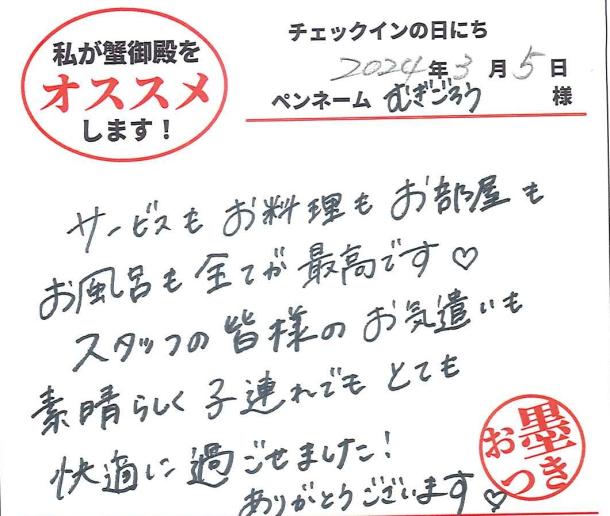 私が蟹御殿を
オススメ
します！
チェックインの日にち
2024年3月5日
ペンネーム むぎごろう 様
サービスもお料理もお部屋も
お風呂も全てが最高です♡
スタッフの皆様のお気遣いも
素晴らしく子連れでもとても
快適に過ごせました！
ありがとうございます♡
お墨
つき